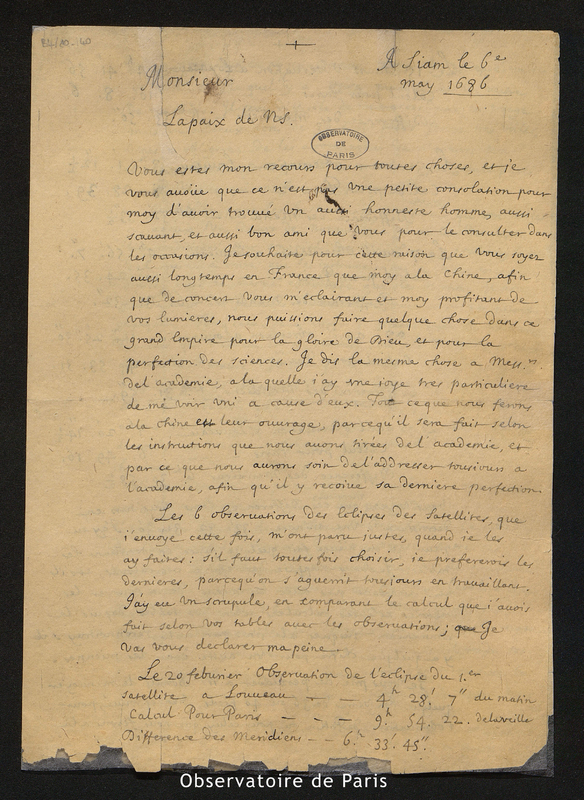 A Siam le 6e
may 1686
Monsieur
Lapaix de Ns.
OBSERVATOIRE
DE
PARIS
Vous estes mon recours pour toutes choses, et je
vous avoüe que ce n'est pas vne petite consolation pour
moy d'auoir trouué vn aussi honneste homme, aussi
scauant, et aussi bon ami que vous pour le consulter dans
les occasions. Je souhaite pour cette raison que vous soyez
aussi longtemps en France que moy ala Chine, afin
que de concert vous m'eclairant et moy profitant de
vos lumieres, nous puissions faire quelque chose dans ce
grand Empire pour la gloire de Dieu, et pour la
perfection des sciences. Je dis la mesme chose a Mess.rs
del'academie, ala quelle i'ay vne joye tres particuliere
de me voir vni a cause d'eux. Tout ce que nous ferons
ala Chine est leur ouvrage, parcequ'il sera fait selon
les instructions que nous auons tirées del'academie, et
par ce que nous aurons soin del'addresser tousiours a
l'academie, afin qu'il y recoiue sa derniere perfection.
Les 6 observations des Eclipses des Satellites, que
i'envoye cette fois, m'ont paru justes, quand ie les
ay faites: s'il faut toutes fois choisir, ie prefererois les
dernieres, parcequ'on s'aguerrit tousjours en travaillant.
J'ay eu vn scrupule, en comparant le calcul que i'auois
fait selon vos tables avec les observations; que Je
vas vous declarer ma peine.
Le 20 feburier Observation de l'eclipse du 1.er
satellite a Louueau - - 4.h 28.' 7" du matin
Calcul Pour Paris - - - 9.h 54. 22. delaveille
Difference des Meridiens - - 6.h 33.' 45".
Observatoire de Paris